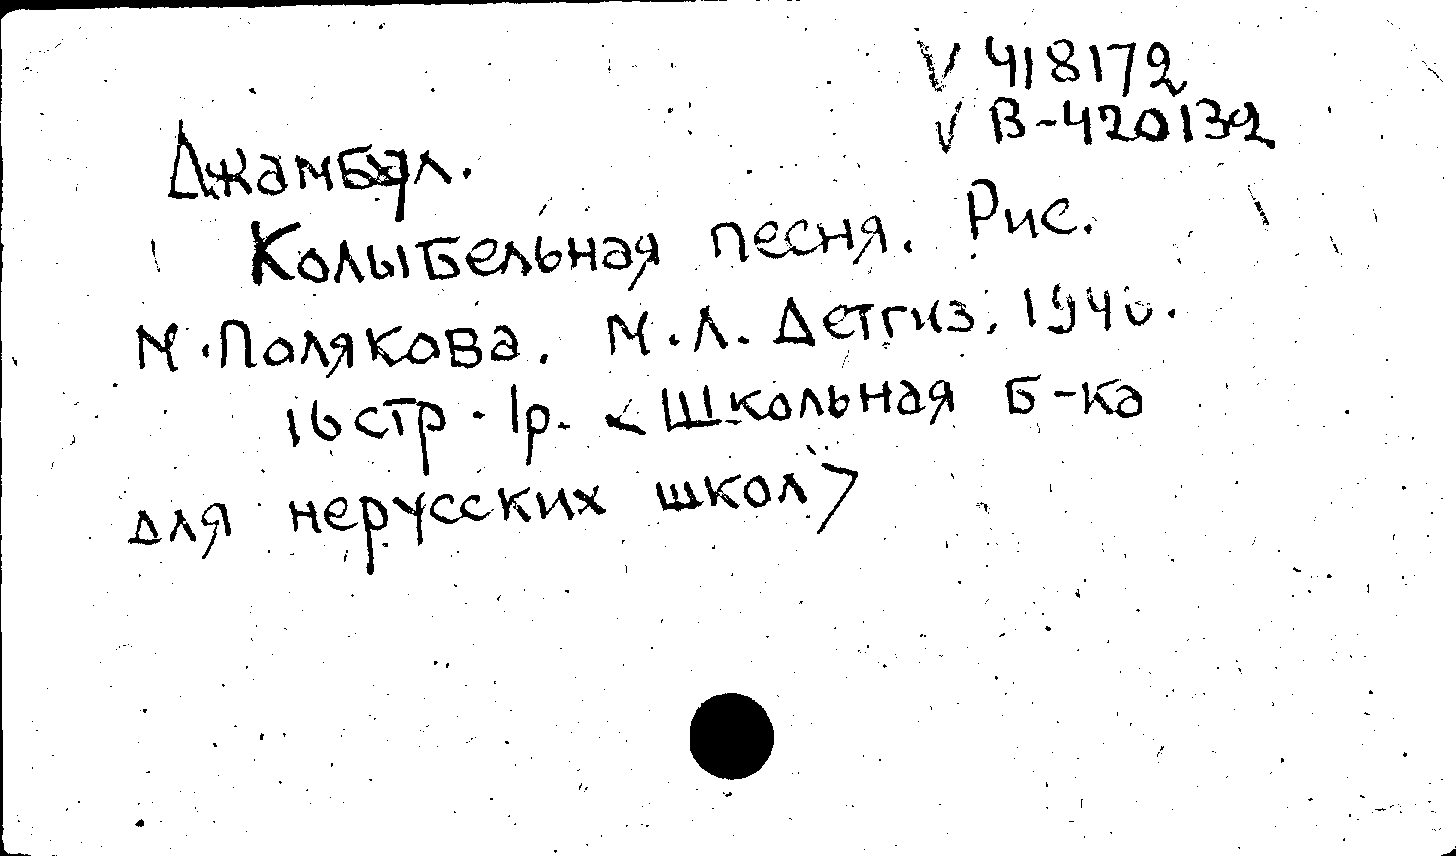 V 418172
V В-420132
Джамбул.
Колыбельная песня. Рис.
М. Полякова. М.Л. Детгиз. 1940.
16 стр. 1р. <Школьная б-ка
для нерусских школ>